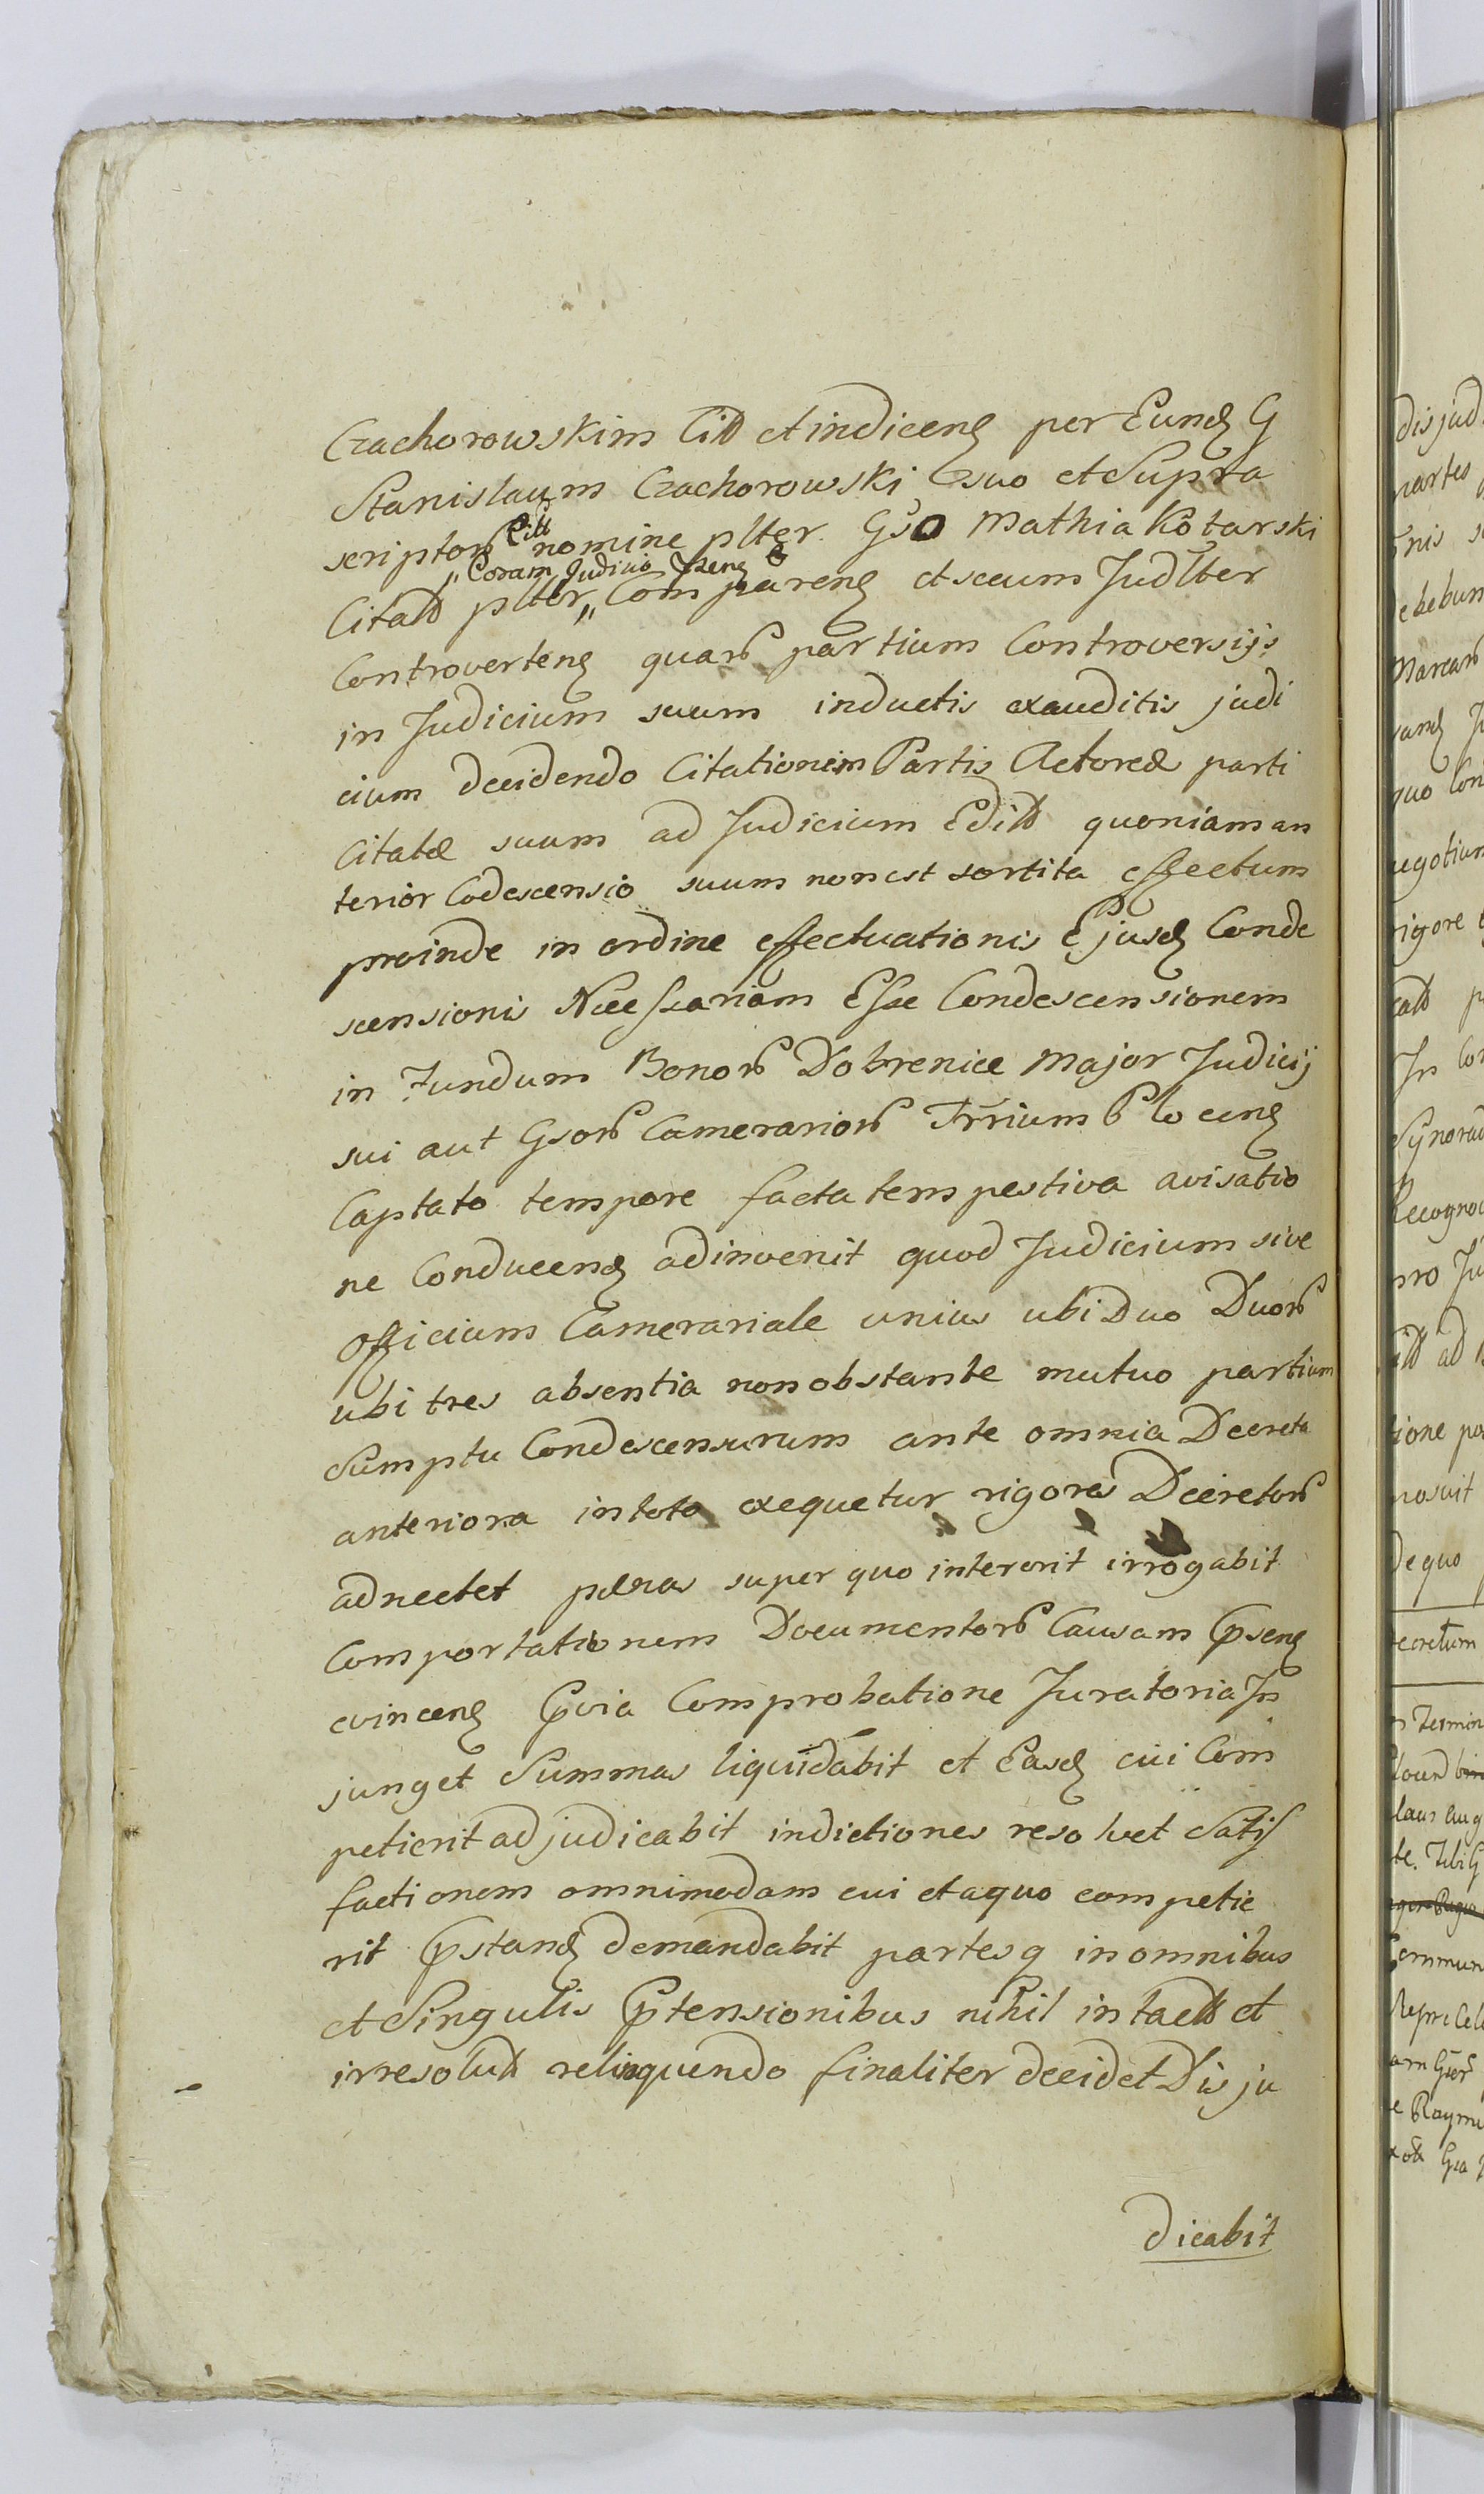 Czachorowskim Citt et indicens per Eund G
Stanislaum Czachorowski Gsuo et Supra
scriptor Citt nomine plter Gso Mathia Kotarski
"Coram Judicio Psens
Citatt plter " Comparens et secum Judlter
Controvertens quar partium Controversijs
in Judicium suum inductis exauditis judi
cium decidendo Citationem Partis Actoreæ parti
Citatæ suum ad Judicium Editt quoniam an
terior Codescensio suum non est sortita effectum
proinde in ordine effectuationis Ejusd Conde
scensionis Necessariam Esse Condescensionem
in Fundum Bonor Dobrenice Major Judicij
sui aut Gsor Camerarior Trrium Plocens
Captato tempore facta tempestiva avisatio
ne Conducend adinvenit quod Judicium sive
Officium Camerariale unius ubi Duo Duor
ubi tres absentia non obstante mutuo partium
Sumptu Condescensurum ante omnia Decreta
anteriora in toto exequetur rigores Decretor
adnectet pænas super quo intererit irrogabit
Comportationem Documentor Causam Psens
evincens Pvia Comprobatione Juratoria In
junget Summas liquidabit et Easd cui Com
petierit adjudicabit indictiones resolvet Satis
factionem omnimodam cui et a quo competie
rit Pstand demandabit partesq in omnibus
et Singulis Ptensionibus nihil intactt et
irresolutt relinquendo finaliter decidet Disju
dicabit